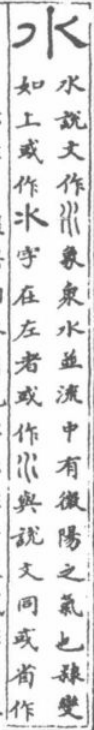 水
水說文作𣱱象衆水並流中有微陽之氣也隸變
如上或作氺字在左者或作𣱱與說文同或省作